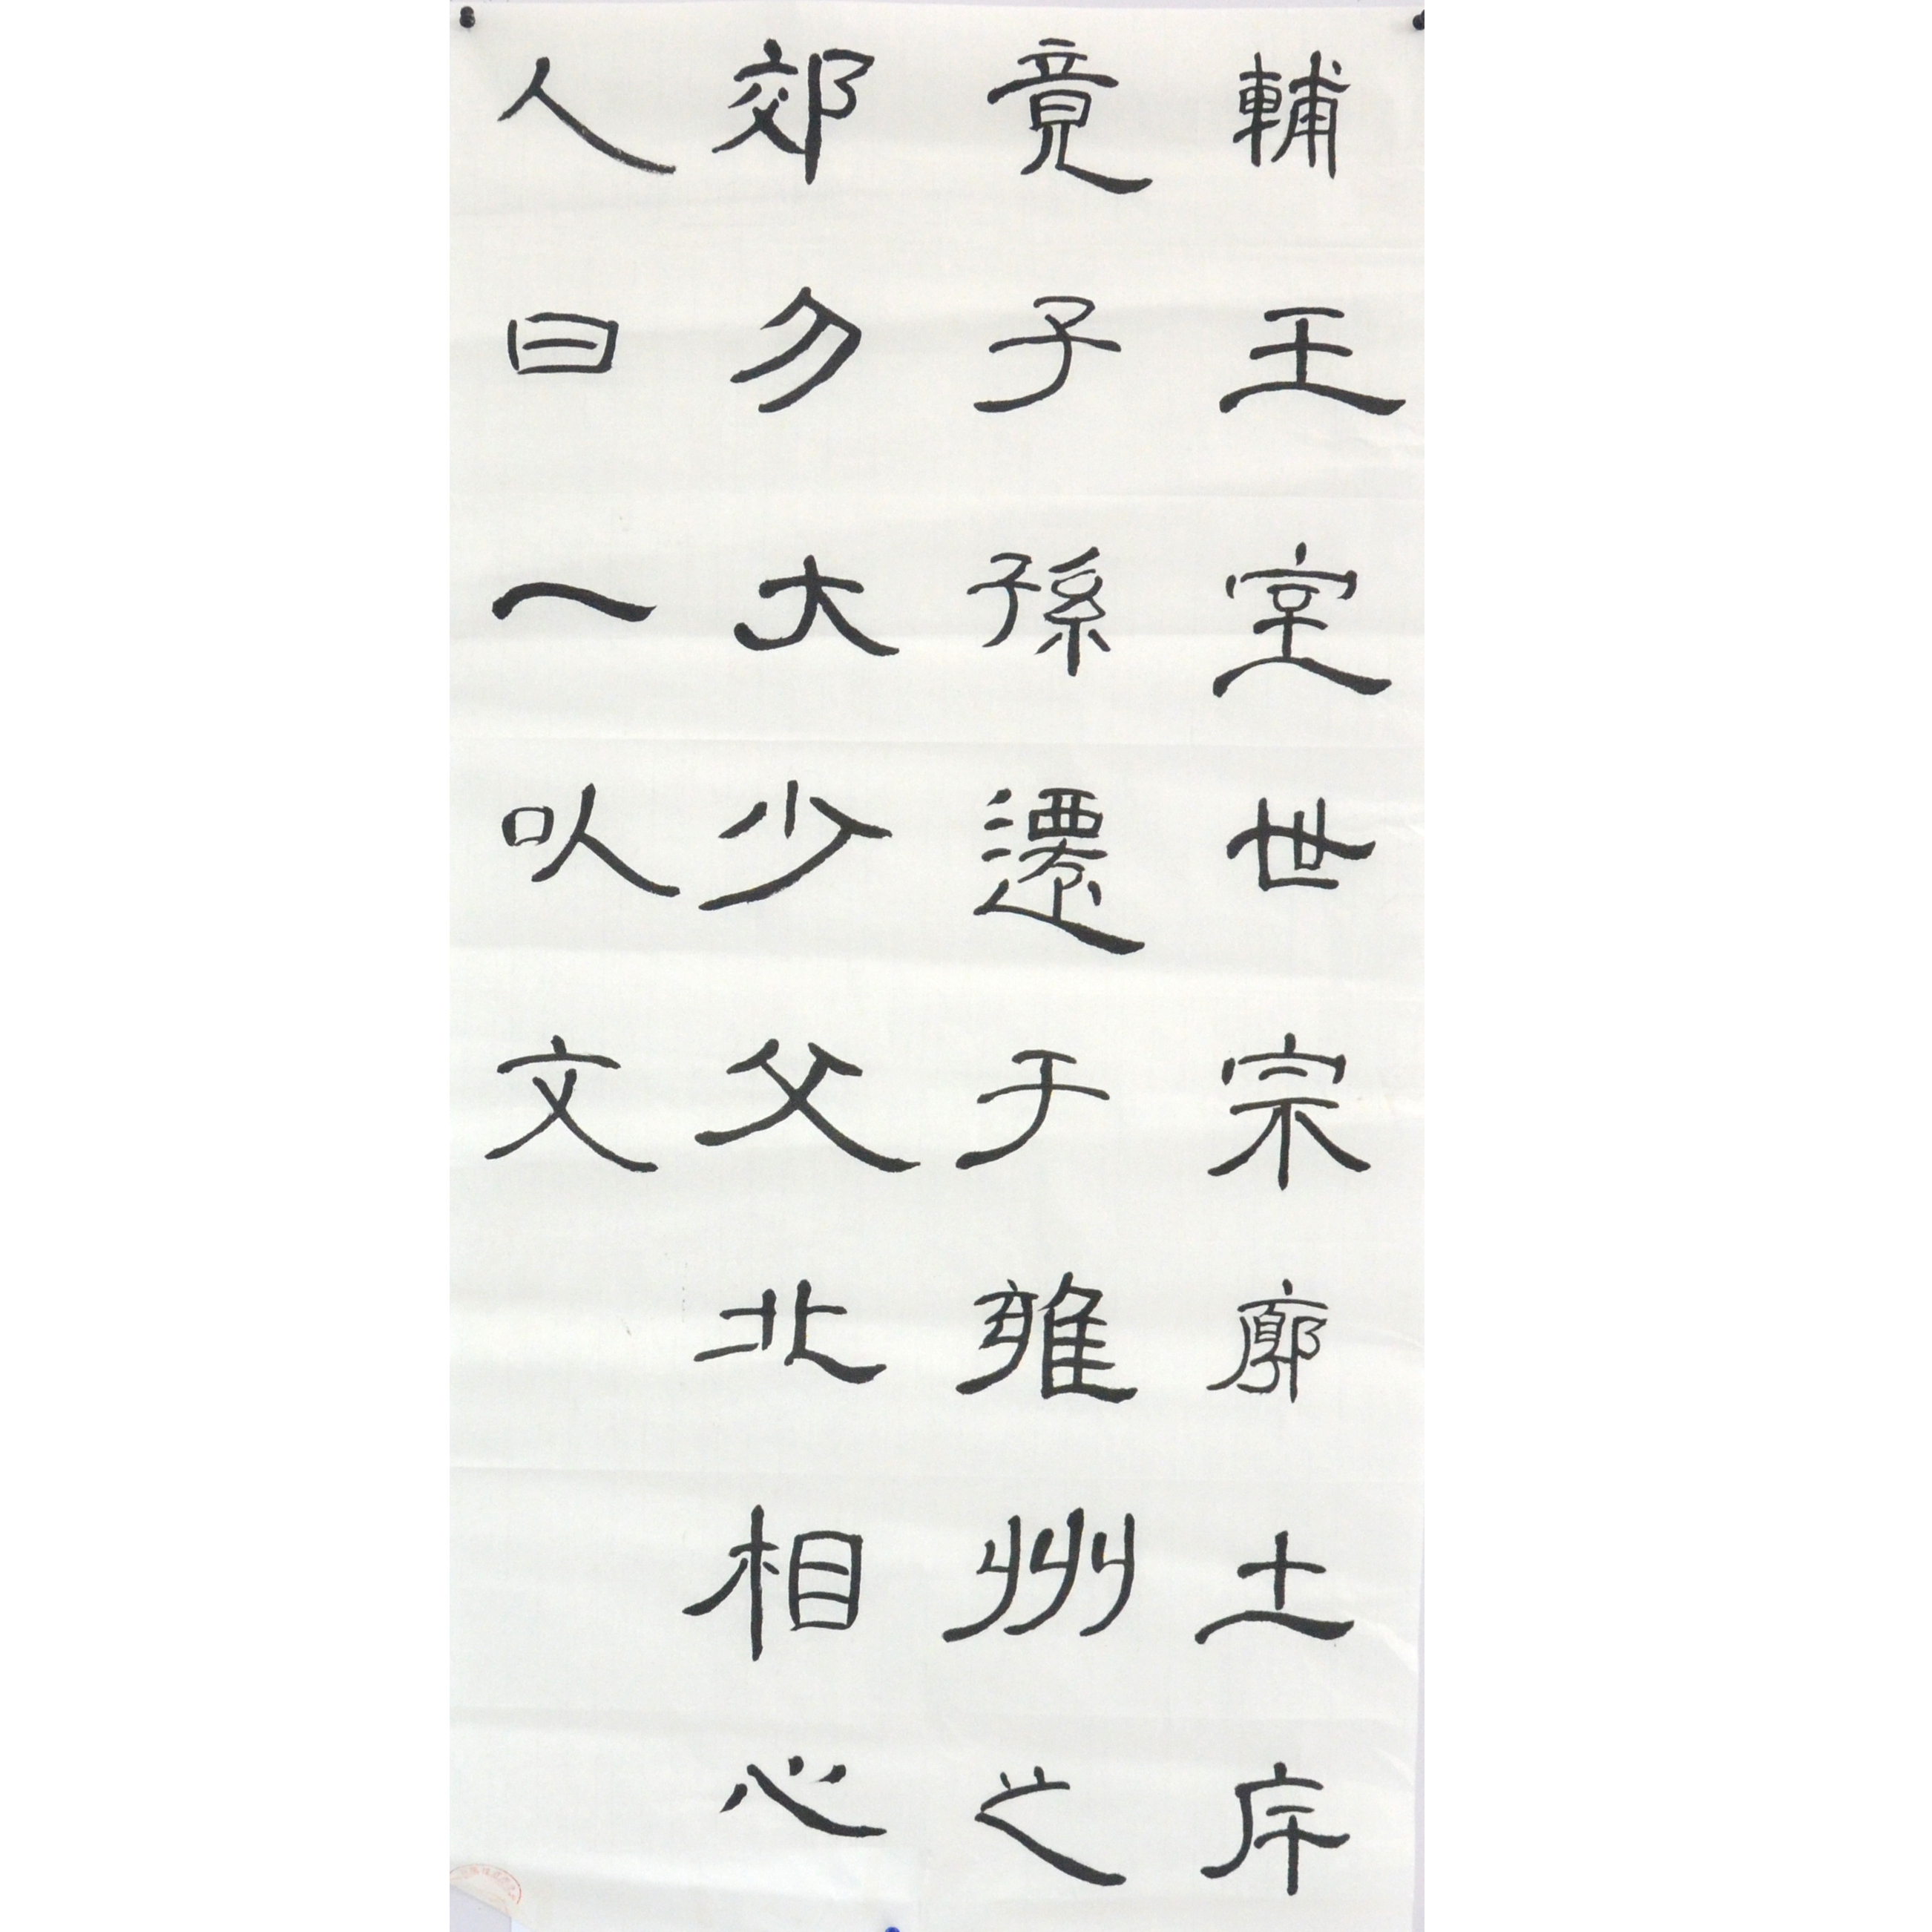 輔王室世宗廓土斥
竟子孫遷于雍州之
郊勿大少父北相心
人曰一以文